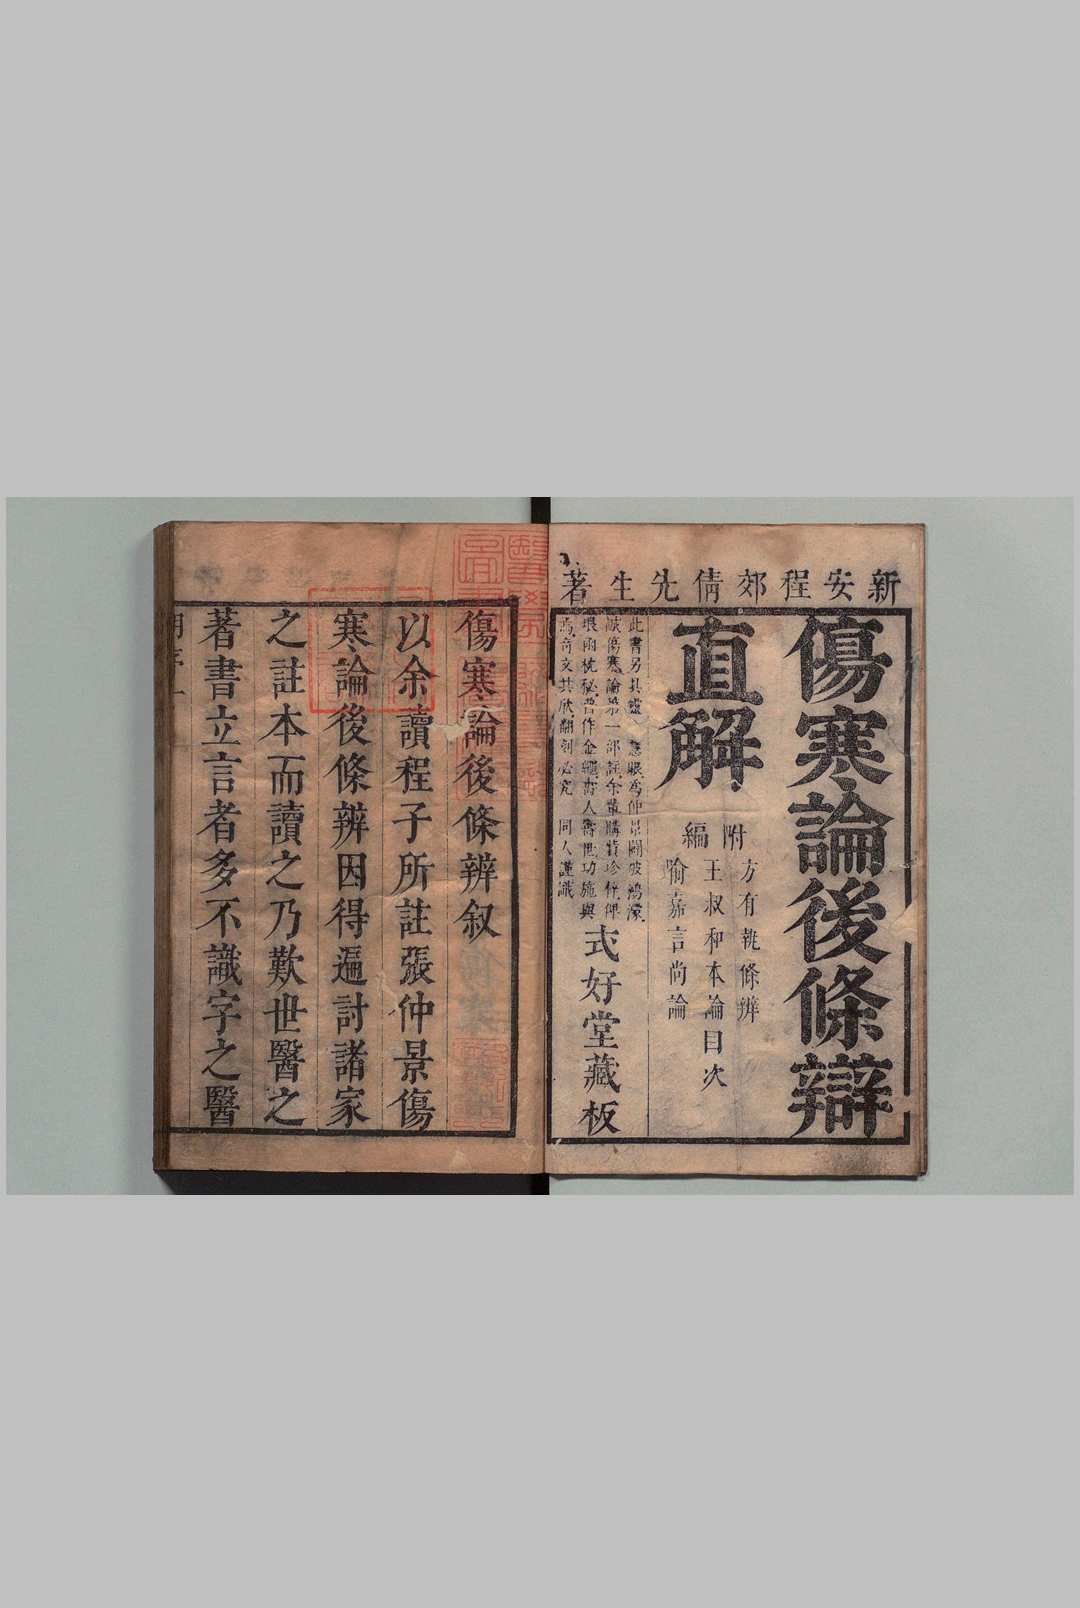 新安程郊倩先生著
傷寒論後條辯
直解
附編
方有執條辨
王叔和本論目次
喻嘉言尚論
此書另具靈 慧眼為仲景闢破鴻濛
傷寒論第一部註余董購
枕秘
奇文共欣翻刻必究 同人謹識
式好堂藏板
傷寒論後條辨叙
以余讀程子所註張仲景傷
寒論後條辨因得遍討諸家
之註本而讀之乃歎世醫之
著書立言者多不識字之醫